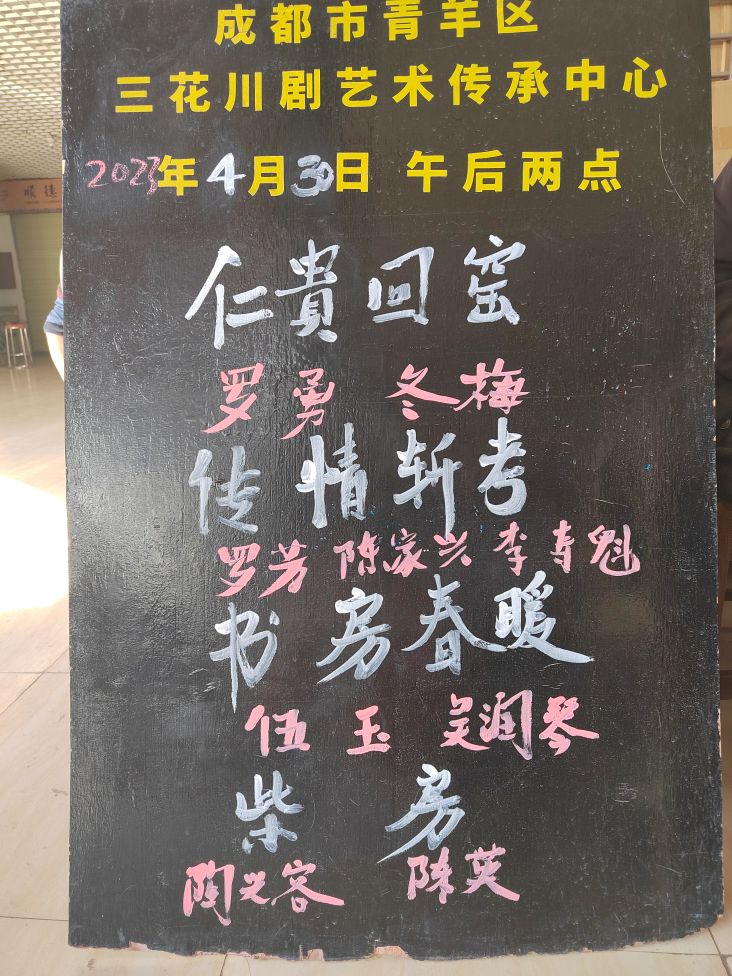 成都市青羊区
三花川剧艺术传承中心
2023年4月30日 午后两点
仁貴回窑
罗勇 冬梅
传情斩考
罗芳 陈家兴 李奇魁
书房春暖
伍玉 吴润琴
柴房
陶兴容 陈英
順德